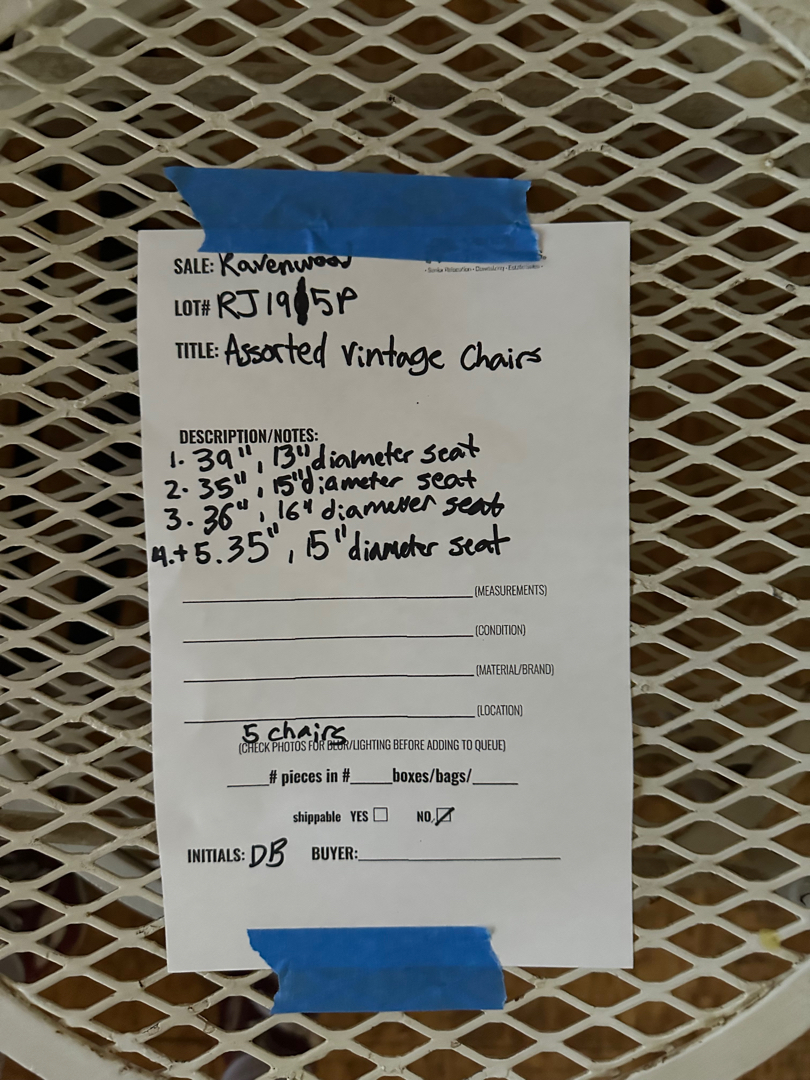 SALE: Ravenwood
LOT# RJ1915P
TITLE: Assorted Vintage Chairs
DESCRIPTION/NOTES:
1. 39", 13" diameter seat
2. 35", 15" diameter seat
3. 36", 16" diameter seat
4.+5. 35", 15" diameter seat
(MEASUREMENTS)
(CONDITION)
(MATERIAL/BRAND)
(LOCATION)
5 chairs
(CHECK PHOTOS FOR BLUR/LIGHTING BEFORE ADDING TO QUEUE)
____# pieces in #____boxes/bags/____
shippable YES ☐ NO ☑
INITIALS: DB BUYER: